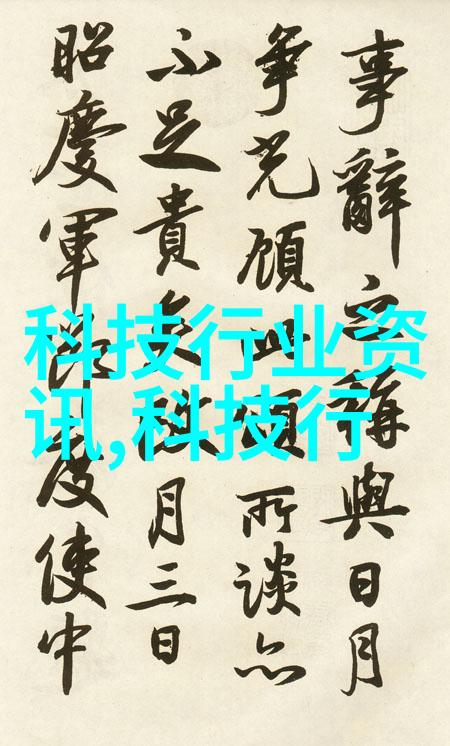 事辭稱與日月
爭光顧此所談亦
不足貴矣月三日
昭慶軍節度使中
科技行业资
讯,科技行